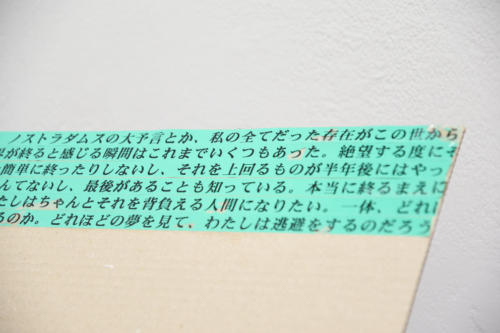 ノストラダムスの大予言とか、私の全てだった存在がこの世から
が終ると感じる瞬間はこれまでいくつもあった。絶望する度にそ
簡単に終ったりしないし、それを上回るものが半年後にはやっ
んてないし、最後があることも知っている。本当に終るまえに
たしはちゃんとそれを背負える人間になりたい。一体、どれに
るのか。どれほどの夢を見て、わたしは逃避をするのだろう